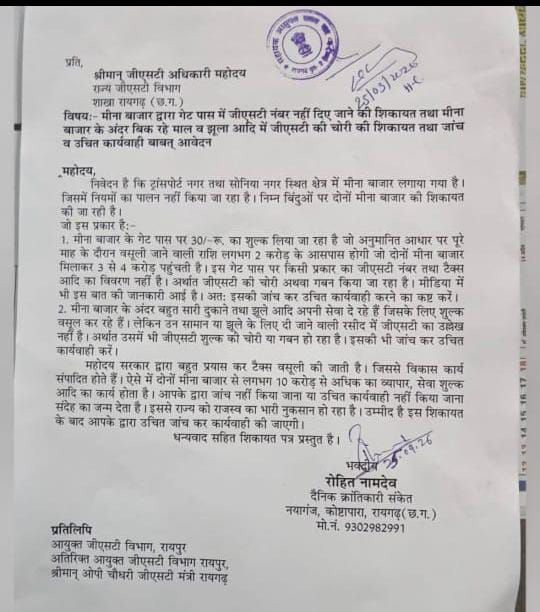 प्रति,
श्रीमान् जीएसटी अधिकारी महोदय
राज्य जीएसटी विभाग
शाखा रायगढ़ (छ.ग.)
25/03/2026
विषय:- मीना बाजार द्वारा गेट पास में जीएसटी नंबर नहीं दिए जाने की शिकायत तथा मीना
बाजार के अंदर बिक रहे माल व झूला आदि में जीएसटी की चोरी की शिकायत तथा जांच
व उचित कार्यवाही बाबत् आवेदन
महोदय,
निवेदन है कि ट्रांसपोर्ट नगर तथा सोनिया नगर स्थित क्षेत्र में मीना बाजार लगाया गया है।
जिसमें नियमों का पालन नहीं किया जा रहा है। निम्न बिंदुओं पर दोनों मीना बाजार की शिकायत
की जा रही है।
जो इस प्रकार है:-
1. मीना बाजार के गेट पास पर 30/-रू. का शुल्क लिया जा रहा है जो अनुमानित आधार पर पूरे
माह के दौरान वसूली जाने वाली राशि लगभग 2 करोड़ के आसपास होगी जो दोनों मीना बाजार
मिलाकर 3 से 4 करोड़ पहुंचती है। इस गेट पास पर किसी प्रकार का जीएसटी नंबर तथा टैक्स
आदि का विवरण नहीं है। अर्थात जीएसटी की चोरी अथवा गबन किया जा रहा है। मीडिया में
भी इस बात की जानकारी आई है। अत: इसकी जांच कर उचित कार्यवाही करने का कष्ट करें।
2. मीना बाजार के अंदर बहुत सारी दुकाने तथा झूले आदि अपनी सेवा दे रहे हैं जिसके लिए शुल्क
वसूल कर रहे हैं। लेकिन उन सामान या झूले के लिए दी जाने वाली रसीद में जीएसटी का उल्लेख
नहीं है। अर्थात उसमें भी जीएसटी शुल्क की चोरी या गबन हो रहा है। इसकी भी जांच कर उचित
कार्यवाही करें।
महोदय सरकार द्वारा बहुत प्रयास कर टैक्स वसूली की जाती है। जिससे विकास कार्य
संपादित होते हैं। ऐसे में दोनों मीना बाजार से लगभग 10 करोड़ से अधिक का व्यापार, सेवा शुल्क
आदि का कार्य होता है। आपके द्वारा जांच नहीं किया जाना या उचित कार्यवाही नहीं किया जाना
संदेह का जन्म देता है। इससे राज्य को राजस्व का भारी नुकसान हो रहा है। उम्मीद है इस शिकायत
के बाद आपके द्वारा उचित जांच कर कार्यवाही की जाएगी।
धन्यवाद सहित शिकायत पत्र प्रस्तुत है।
भवदीय
रोहित नामदेव
दैनिक क्रांतिकारी संकेत
नयागंज, कोष्टापारा, रायगढ़(छ.ग.)
मो.नं. 9302982991
प्रतिलिपि
आयुक्त जीएसटी विभाग, रायपुर
अतिरिक्त आयुक्त जीएसटी विभाग रायपुर,
श्रीमान् ओपी चौधरी जीएसटी मंत्री रायगढ़